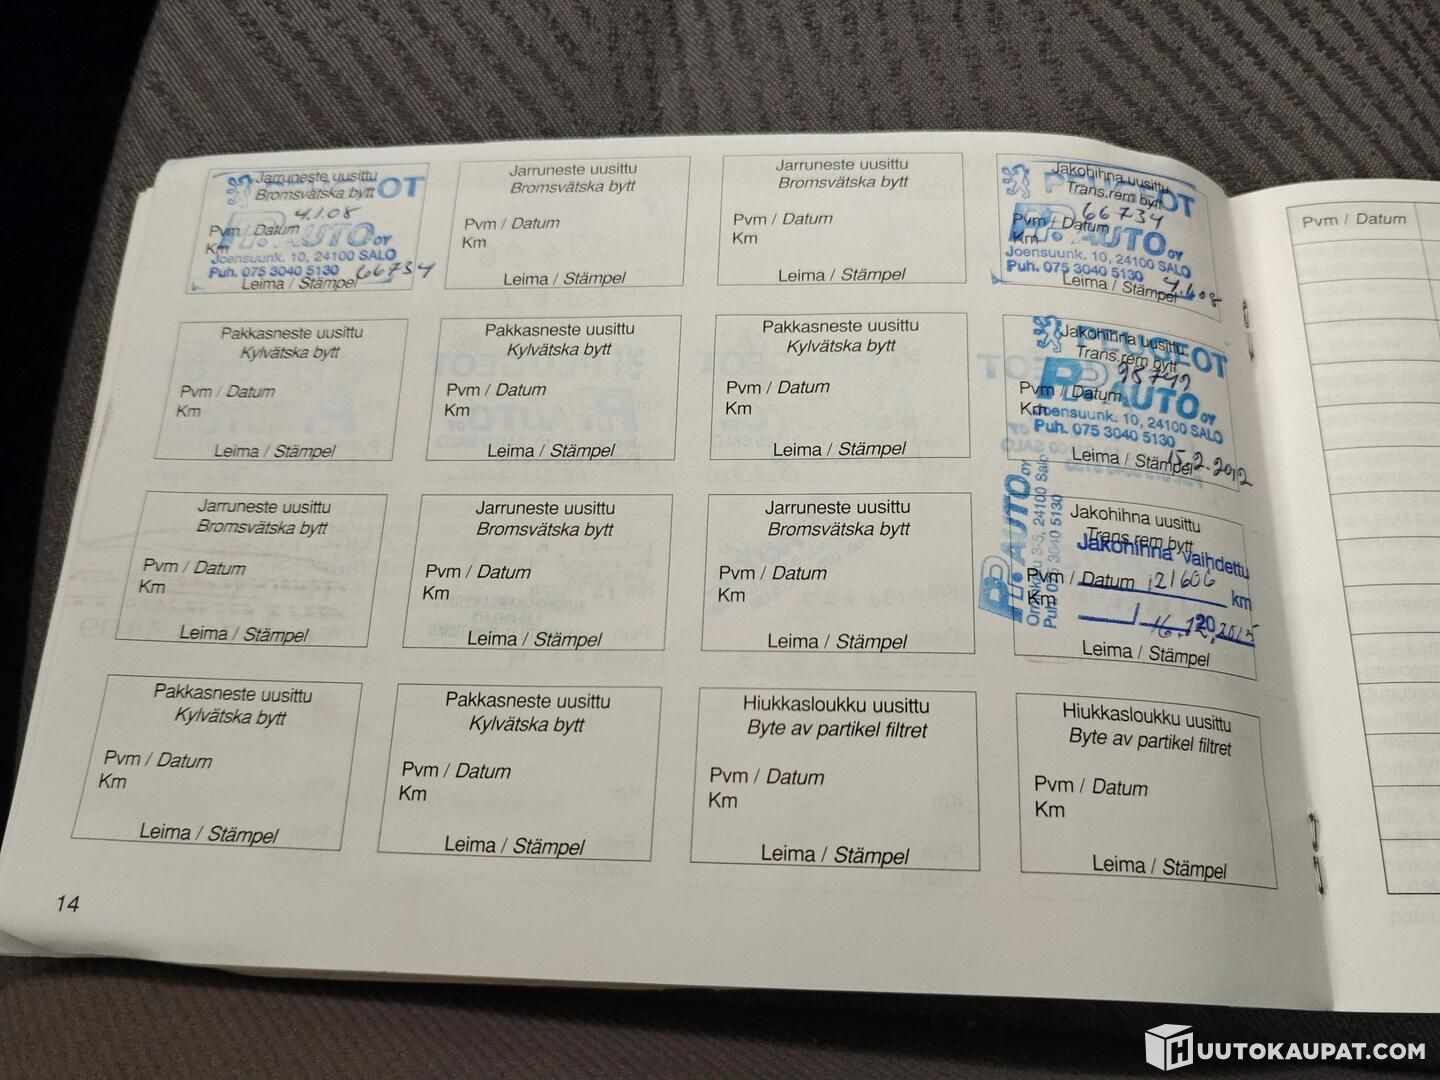 Jarruneste uusittu
Bromsvätska bytt
PEUGEOT
4.1.08
Pvm / Datum
P.P. AUTO OY
Km
Joensuunk. 10, 24100 SALO
Puh. 075 3040 5130
66734
Leima / Stämpel
Jarruneste uusittu
Bromsvätska bytt
Pvm / Datum
Km
Leima / Stämpel
Jarruneste uusittu
Bromsvätska bytt
Pvm / Datum
Km
Leima / Stämpel
Jakohihna uusittu
PEUGEOT
Trans.rem bytt
66734
Pvm / Datum
P.P. AUTO OY
Km
Joensuunk. 10, 24100 SALO
Puh. 075 3040 5130
Leima / Stämpel
4.1.08
Pakkasneste uusittu
Kylvätska bytt
Pvm / Datum
Km
Leima / Stämpel
Pakkasneste uusittu
Kylvätska bytt
Pvm / Datum
Km
Leima / Stämpel
Pakkasneste uusittu
Kylvätska bytt
Pvm / Datum
Km
Leima / Stämpel
Jakohihna uusittu
PEUGEOT
Trans.rem bytt
98742
Pvm / Datum
P.P. AUTO OY
Km
Joensuunk. 10, 24100 SALO
Puh. 075 3040 5130
Leima / Stämpel
15.2.2012
Jarruneste uusittu
Bromsvätska bytt
Pvm / Datum
Km
Leima / Stämpel
Jarruneste uusittu
Bromsvätska bytt
Pvm / Datum
Km
Leima / Stämpel
Jarruneste uusittu
Bromsvätska bytt
Pvm / Datum
Km
Leima / Stämpel
P.P. AUTO OY
3-5, 24100 Salo
Puh 075 3040 5130
Jakohihna uusittu
Trans.rem bytt
Jakohihna vaihdettu
Pvm / Datum 121606 km
Km
16.12.2015
20
Leima / Stämpel
Pakkasneste uusittu
Kylvätska bytt
Pvm / Datum
Km
Leima / Stämpel
Pakkasneste uusittu
Kylvätska bytt
Pvm / Datum
Km
Leima / Stämpel
Hiukkasloukku uusittu
Byte av partikel filtret
Pvm / Datum
Km
Leima / Stämpel
Hiukkasloukku uusittu
Byte av partikel filtret
Pvm / Datum
Km
Leima / Stämpel
14
Pvm / Datum
HUUTOKAUPAT.COM